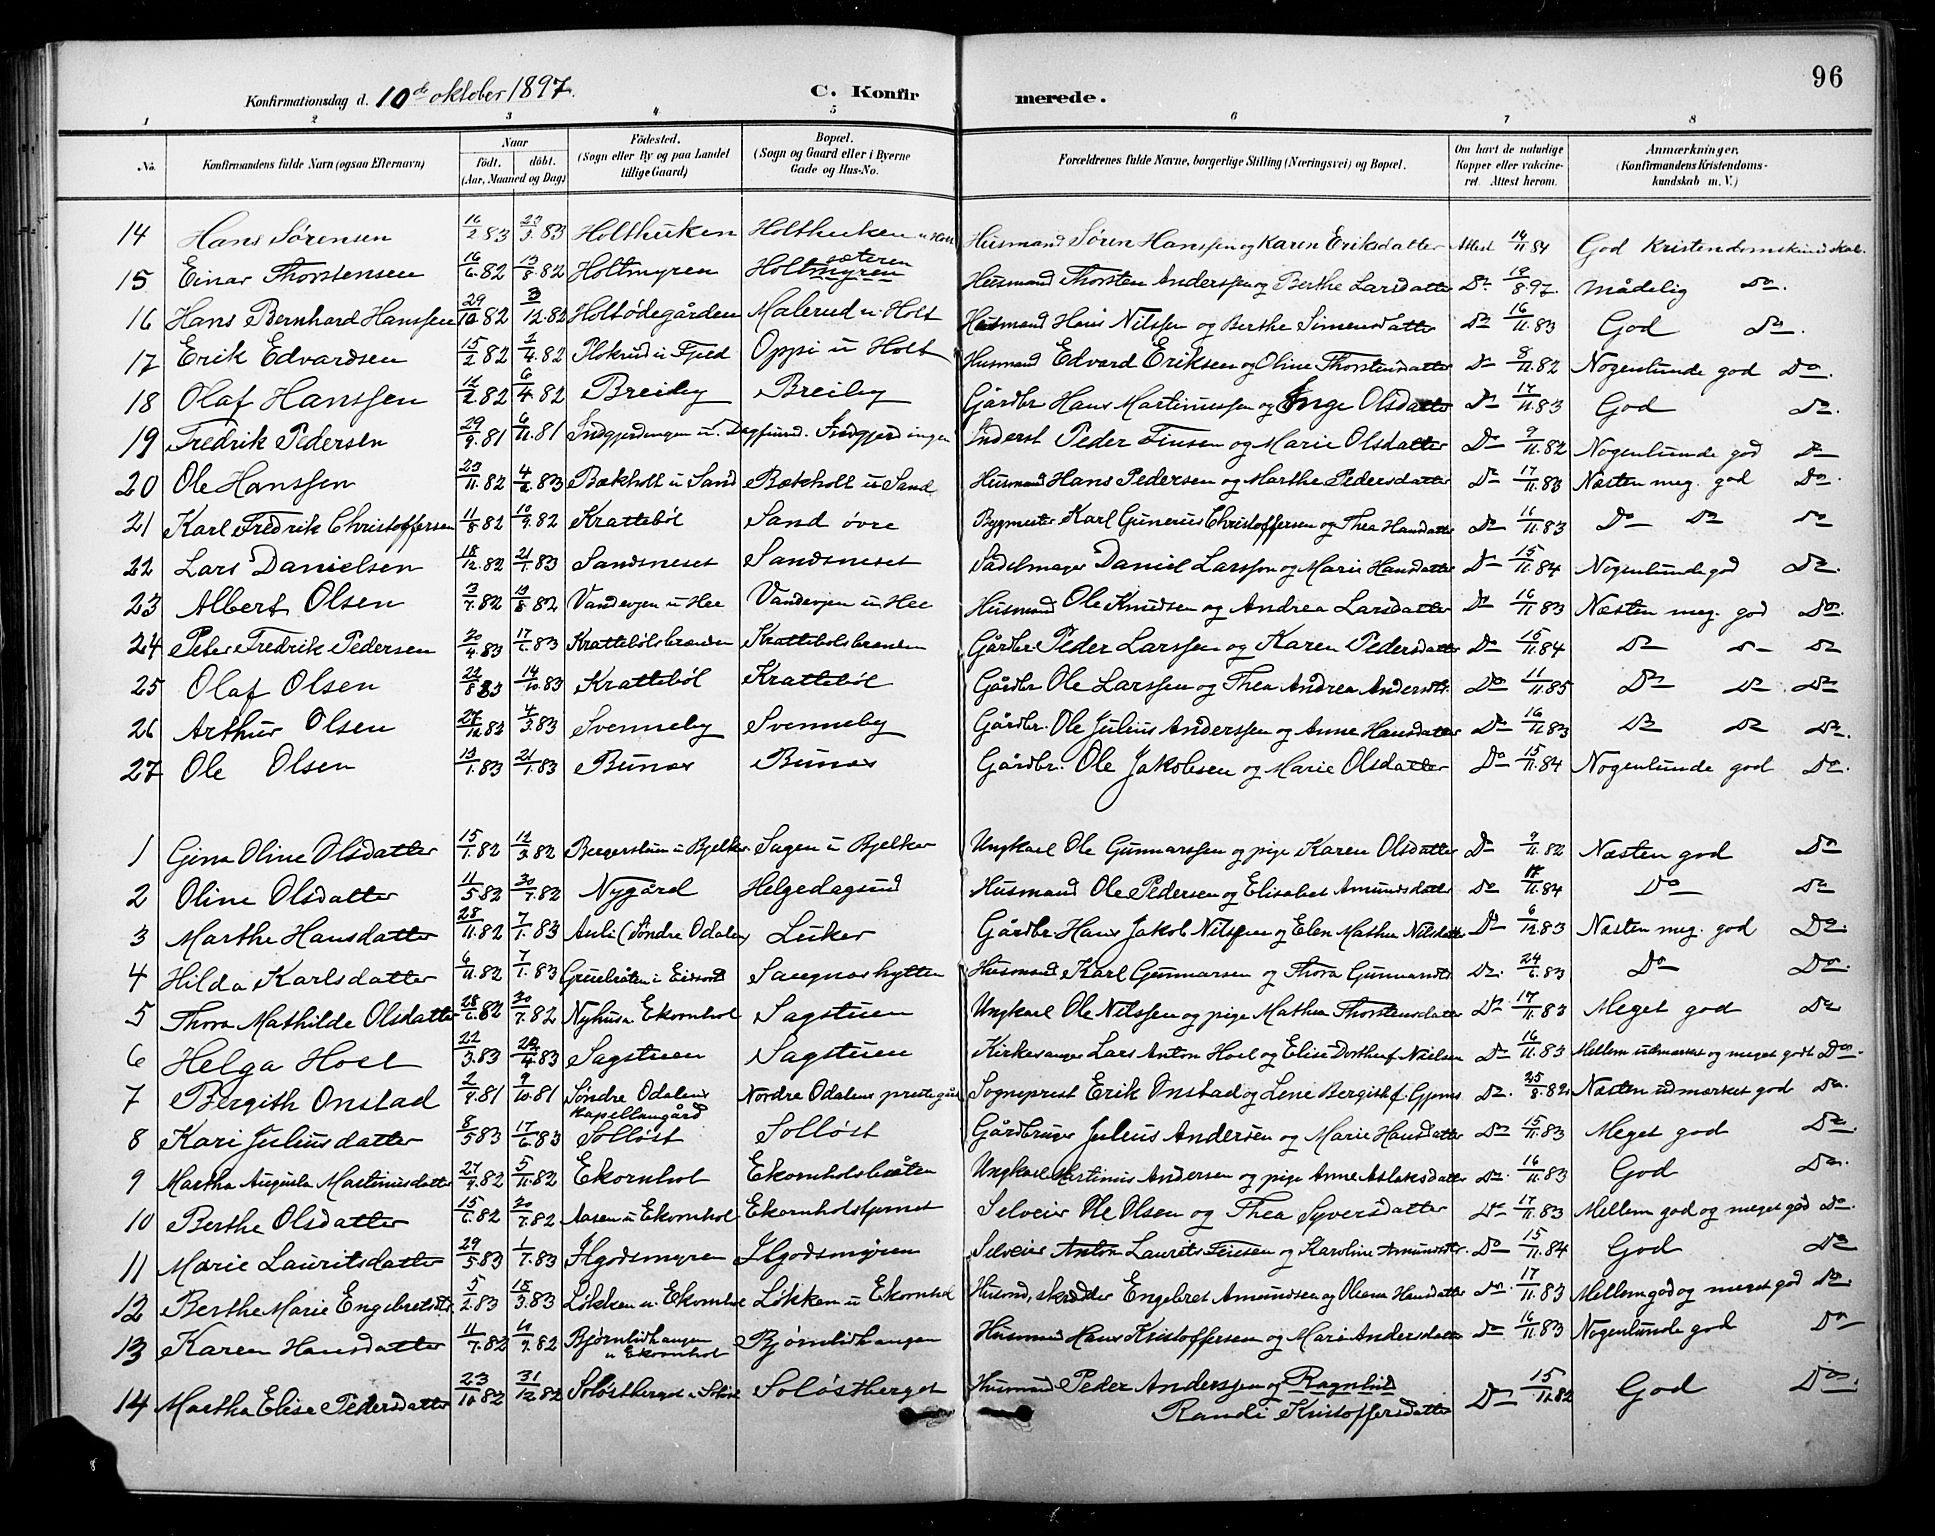 96
Konfirmationsdag d. 10de oktober 1897. C. Konfirmerede.
1 2 3 4 5 6 7 8
No. Konfirmandens fulde Navn (ogsaa Efternavn) Naar födt. döbt. (Aar, Maaned og Dag) Födested. (Sogn eller By og paa Landet tillige Gaard) Bopæl. (Sogn og Gaard eller i Byerne Gade og Hus-No. Forældrenes fulde Navne, borgerlige Stilling (Næringsvei) og Bopæl. Om havt de naturlige Kopper eller vakcineret. Attest herom. Anmærkninger, (Konfirmandens Kristendomskundskab m. V.)
14 Hans Sørensen 16/2 83 Holthuken Holthuken Husmand Søren Hanssen og Karen Eriksdatter Attest God Kristendomskundskab
15 Einar Thorstensen 16/6 82 13/8 82 Holtmyren Holtsæteren Husmand Thorsten Anderssen og Berthe Larsdatter Do 8.97 Mådelig Do.
16 Hans Bernhard Hanssen 29/10 82 3/12 82 Holtødegården Malerud u. Holt Husmand Hans Nilssen og Berthe Simensdatter Do 16/11.83 God Do.
17 Erik Edvardsen 15/2 82 2/4 82 Plokrud u Fjeld Oppi u Holt Husmand Edvard Eriksen og Oline Thorstensdatter Do 8/11.82 Nogenlunde god Do.
18 Olaf Hanssen 82 6/4 82 Breiby Breiby Gårdbr. Hans Martinussen og Inge Olsdatter Do 17/11.83 God Do.
19 Fredrik Pedersen 29/9.81 6/11.81 Indgjerdingen u. Dagsund. Indgjerdingen Inderst Peder Finsen og Marie Olsdatter Do 9/11.82 Nogenlunde god Do
20 Ole Hanssen 23/11.82 4/2 83 Bækholt u Sand Bækholt u Sand Husmand Hans Pedersen og Marthe Pedersdatter Do 17/11.83 Næsten meg. god Do.
21 Karl Fredrik Christoffersen 11/8 82 10/9.82 Kratteböl Sand övre Bygmester Karl Gunerius Christoffersen og Thea Hansdatter Do 16/11.83 Do Do Do
22 Lars Danielsen 18/12.82 21/1.83 Sandsneset Sandsneset Sadelmager Daniel Larssen og Marie Hansdatter Do 15/11.84 Nogenlunde god Do.
23 Albert Olsen 3/7.82 13/8 82 Vandvejen u Hee Vandvejen u Hee Husmand Ole Knudsen og Andrea Larsdatter Do 16/11.83 Næsten meg. god Do.
24 Peter Fredrik Pedersen 20/4.83 17/6.83 Krattebölsbraaten Krattebölsbraaten Gårdbr. Peder Larssen og Karen Pedersdatter Do 15/11.84 Do Do Do
25 Olaf Olsen 22/8 83 14/10 83 Kratteböl Kratteböl Gårdbr Ole Larssen og Thea Andrea Andersdt. Do 11/11.85 Do Do Do
26 Arthur Olsen 27/12 82 4/3.83 Svenneby Svenneby Gårdbr. Ole Julius Anderssen og Anne Hansdatter Do 16/12 83 Do Do Do.
27 Ole Olsen 13/1.83 21/1.83 Bunæs Bunæs Gårdbr. Ole Jakobsen og Marie Olsdatter Do 15/11.84 Nogenlunde god Do.
1 Gina Oline Olsdatter 15/1.82 12/3 82 Bergerstun u Bjelker Sagen u Bjelker Ungkarl Ole Gunnarssen og pige Karen Olsdatter Do 9/11.82 Næsten god Do
2 Oline Olsdatter 11/5 82 30/7.82 Nygård Helgedagsund Husmand Ole Pedersen og Elisabet Amundsdatter Do 11.84 Do Do
3 Marthe Hansdatter 28/11.82 7/1.83 Auli (Söndre Odalen Luker Gårdbr. Hans Jakob Nilssen og Elen Mathea Nilsdatter Do 6/12 83 Næsten meg. god Do.
4 Hilda Karlsdatter 6/11.82 7/1.83 Gruebråten i Eidsvold Saugnæshytten Husmand Karl Gunnarsen og Thora Gunnarsdt. Do. 24/6.83 Do Do.
5 Thora Mathilde Olsdatter 28/6.82 30/7.82 Nyhus u Ekornhol Sagstuen Ungkarl Ole Nilssen og pige Mathea Thorstensdatter Do 17/11.83 Meget god Do
6 Helga Hoel 22/3.83 4.83 Sagstuen Sagstuen Kirkesanger Lars Anton Hoel og Elise Dorthea f. Nielsen Do 16/11.83 Mellem udmærket og meget godt Do.
7 Bergith Onstad 2/9.81 9/10.81 Söndre Odalens kapellangård Nordre Odalens prestegård Sogneprest Erik Onstad og Lene Bergith f. Gjems Do. 25/8.82 Næsten udmærket god Do.
8 Kari Juliusdatter 8/5 83 17/6.83 Solløst Solløst Gårdbruger Julius Andersen og Marie Hansdatter Do 15/11.83 Meget god Do.
9 Martha Augusta Martinusdatter 27/9.82 5/11.82 Ekornhol Ekornholsbråten Ungkarl Martinus Andersen og pige Anne Aslaksdatter Do. 16/11.83 God Do.
10 Berthe Olsdatter 15/6.82 30/7.82 Aasen u Ekornhol Ekornholstjernet Selveier Ole Olsen og Thea Syversdatter Do 17/11.83 Mellem god og meget god Do.
11 Marie Lauritsdatter 29/5 83 1/7.83 Ilgodsmyren Ilgodsmyren Selveier Anton Laurits Finsen og Karoline Amundsdtr. Do 15/11.84 God Do
12 Berthe Marie Engebretsdtr 5/2.83 18/3.83 Løkken u. Ekornhol Løkken u Ekornhol Husmd, skrædder Engebret Amundsen og Oleana Hansdatter Do. 17/11.83 Mellem god og meget god Do.
13 Karen Hansdatter 11/7.82 10/9.82 Bjørnlidhaugen u Ekornhol Bjørnlidhaugen Husmand Hans Kristoffersen og Mari Andersdatter Do 16/11.83 Nogenlunde god Do
14 Martha Elise Pedersdatter 23/10 82 31/12 82 Soløstberget u Soløst Soløstberget Husmand Peder Anderssen og Ragnhild Do 15/12.82 God Do.
Randi Kristoffersdatter